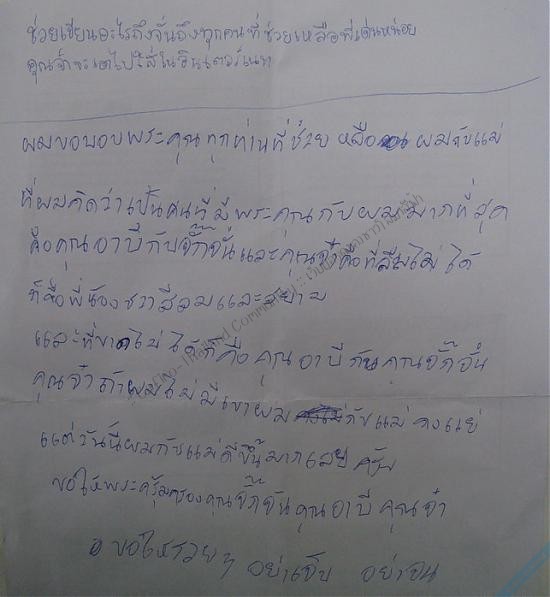 ช่วยเขียนอะไรถึงจั๊นถึงทุกคนที่ช่วยเหลือพี่เด่นหน่อย
คุณจ๋าจะเอาไปใส่ในอินเตอร์เนท
ผมขอบอบพระคุณทุกท่านที่ช่วยเหลือ ผมกับแม่
ที่ผมคิดว่าเป็นคนที่มีพระคุณกับผมมากที่สุด
คือคุณอาบีกับจั๊กจั่นและคุณจ๋าคือที่ลืมไม่ได้
ก็คือพี่น้องชาวสีลมและสยาม
และที่ขาดไม่ได้ก็คือคุณอาบีกับคุณจั๊กจั่น
คุณจ๋าถ้าผมไม่มีเขาผม กับแม่คงแย่
แต่วันนี้ผมกับแม่ดีขึ้นมากเลยครับ
ขอให้พระคุ้มครองคุณจั๊กจั่นคุณอาบีคุณจ๋า
ขอให้รวยๆ อย่าเจ็บ อย่าจน